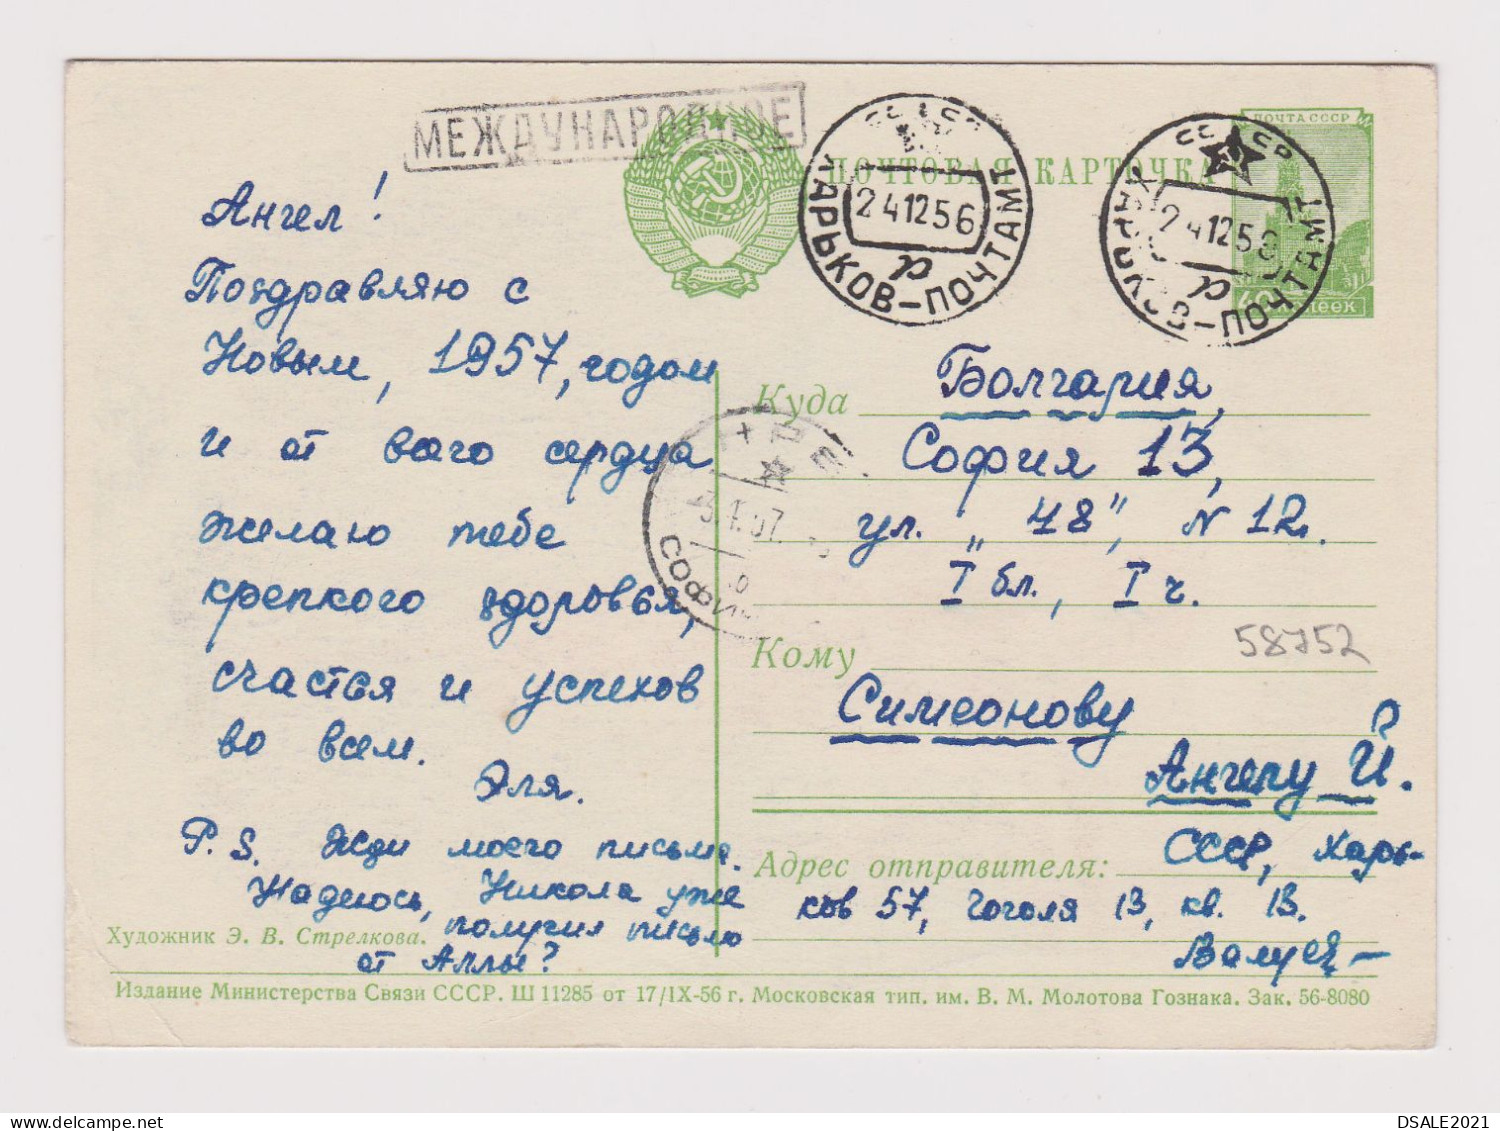 МЕЖДУНАРОДНОЕ
ПОЧТОВАЯ КАРТОЧКА
ПОЧТА СССР
40 КОПЕЕК
СССР
ХАРЬКОВ-ПОЧТАМТ
24 12 56
р
СССР
ХАРЬКОВ-ПОЧТАМТ
24 12 56
р
Ангел!
Поздравляю с
Новым, 1957, годом
и от всего сердца
желаю тебе
крепкого здоровья,
счастья и успехов
во всем.
Эля.
P.S. Жди моего письма.
Надеюсь, Никола уже
получил письмо
от Аллы?
СОФИЯ
Куда Болгария,
София 13,
ул. „48", N 12.
I бл., I ч.
58752
Кому
Симеонову
Ангелу Й.
Адрес отправителя: СССР, Харь-
ков 57, Гоголя 13, кв. 13.
Художник Э. В. Стрелкова.
Издание Министерства Связи СССР. Ш 11285 от 17/IX-56 г. Московская тип. им. В. М. Молотова Гознака. Зак. 56-8080
DSALE2021